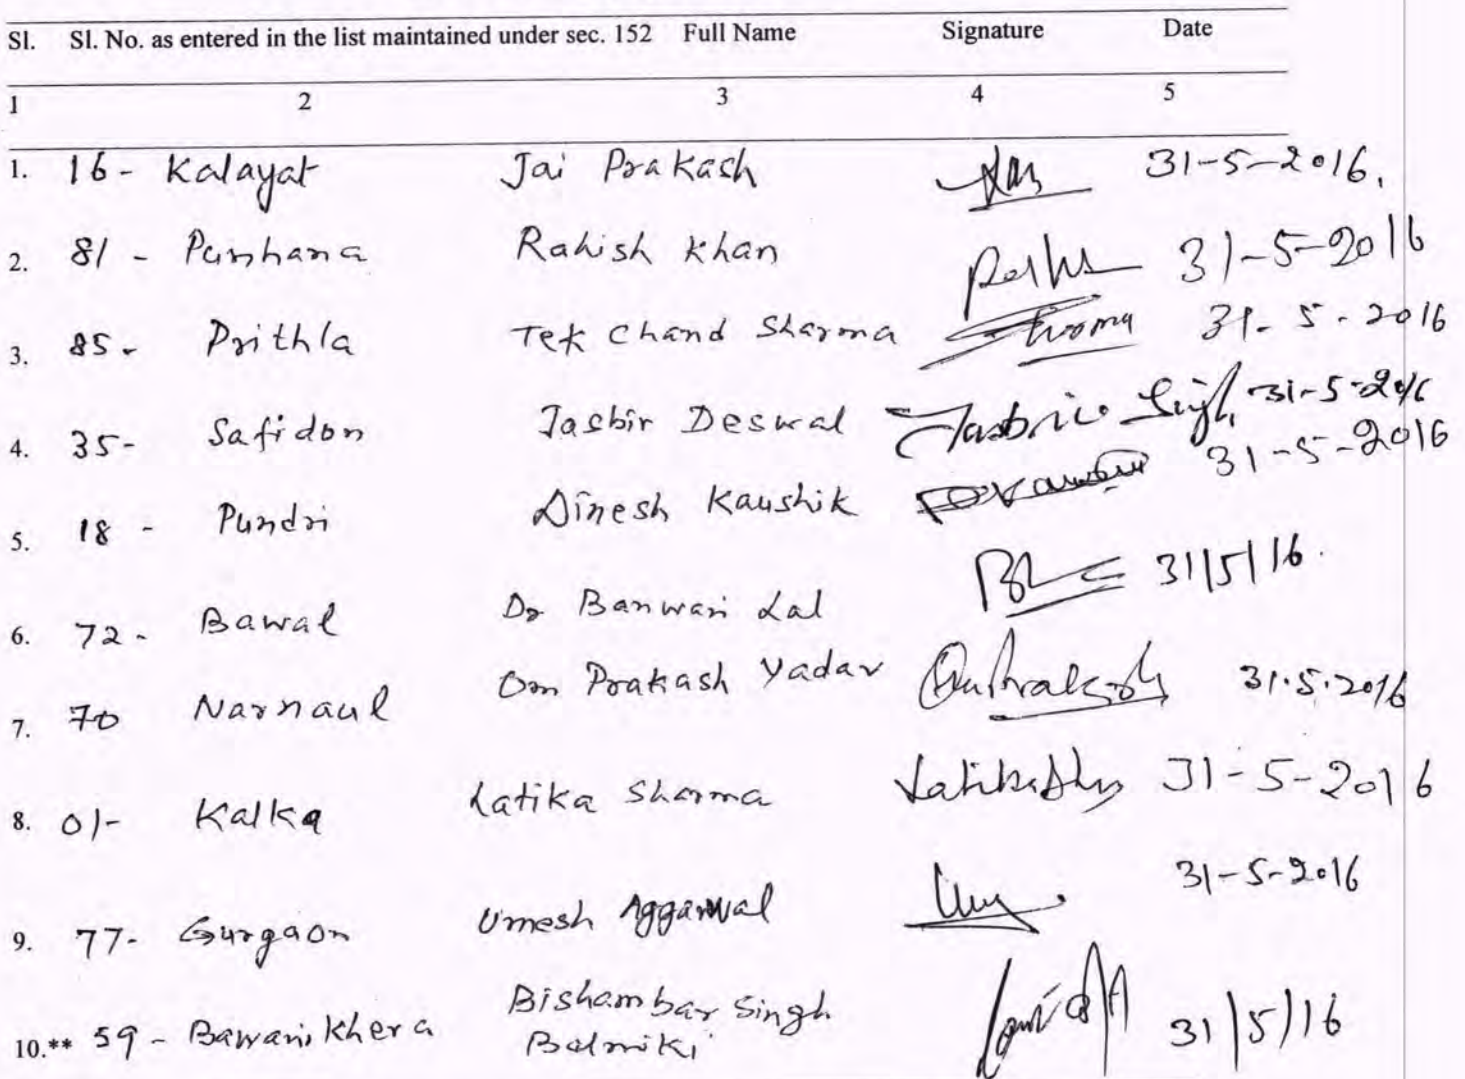 Sl. Sl. No. as entered in the list maintained under sec. 152 Full Name Signature Date
1 2 3 4 5
1. 16- Kalayat Jai Prakash 31-5-2016.
2. 81 - Punhana Rahish Khan 31-5-2016
3. 85- Prithla Tek Chand Sharma 31-5-2016
4. 35- Safidon Jasbir Deswal Jasbir Singh 31-5-2016
5. 18 - Pundri Dinesh Kaushik 31-5-2016
6. 72- Bawal Dr Banwari Lal 31/5/16.
7. 70 Narnaul Om Prakash Yadav Omprakash 31.5.2016
8. 01- Kalka Latika Sharma 31-5-2016
9. 77- Gurgaon Umesh Aggarwal 31-5-2016
10.** 59 - Bawani Khera Bishambar Singh 31/5/16
Balmiki